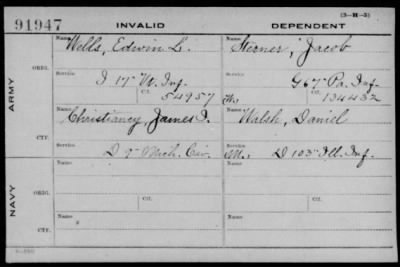 (3-H-5)
91947 INVALID DEPENDENT
Name Wells, Edwin L. Name Sterner, Jacob
ORIG. Service I 17 W. Inf. Service G 67 Pa. Inf.
Ctf. 54957 W. Ctf. 134432
ARMY
Name Christiancy, James I. Name Walsh, Daniel
CTF. Service D 9 Mich. Cav. Service M., D 103 Ill. Inf.
Name Name
ORIG. Ctf. Ctf.
NAVY
Name Name
CTF.